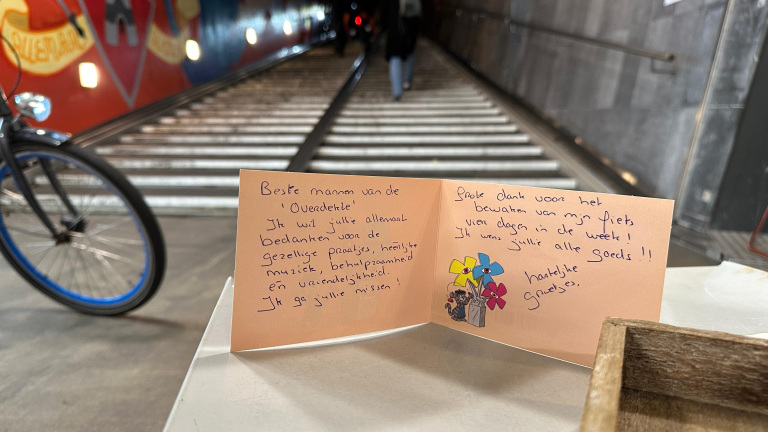 Beste mannen van de
'Overdekte'
Ik wil jullie allemaal
bedanken voor de
gezellige praatjes, heerlijke
muziek, behulpzaamheid
en vriendelijkheid.
Ik ga jullie missen!
Grote dank voor het
bewaken van mijn fiets
vier dagen in de week!
Ik wens jullie alle goeds!!
hartelijke
groetjes,